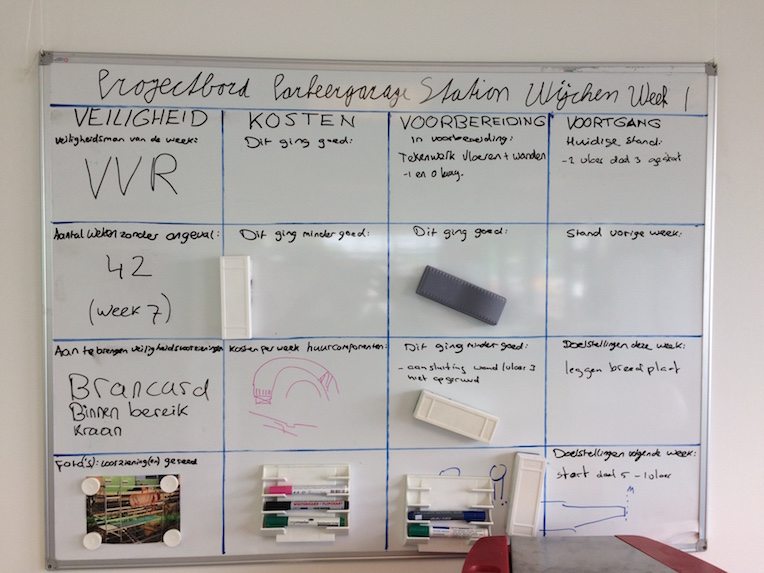 Projectbord Parkeergarage Station Wijchen Week 1
VEILIGHEID
Veiligheidsman van de week:
VVR
KOSTEN
Dit ging goed:
VOORBEREIDING
In voorbereiding:
Tekenwerk vloeren + wanden
-1 en 0 laag.
VOORTGANG
Huidige stand:
-2 vloer deel 3 gestort
Aantal weken zonder ongeval:
42
(week 7)
Dit ging minder goed:
Dit ging goed:
Stand vorige week:
Aan te brengen veiligheidsvoorzieningen
Brancard
Binnen bereik
Kraan
Kosten per week huurcomponenten:
Dit ging minder goed:
- aansluiting wand/vloer 3
niet opgeruwd
Doelstellingen deze week:
leggen breedplaat
Foto('s): voorziening(en) gereed
Doelstellingen volgende week:
start deel 5 -1 vloer